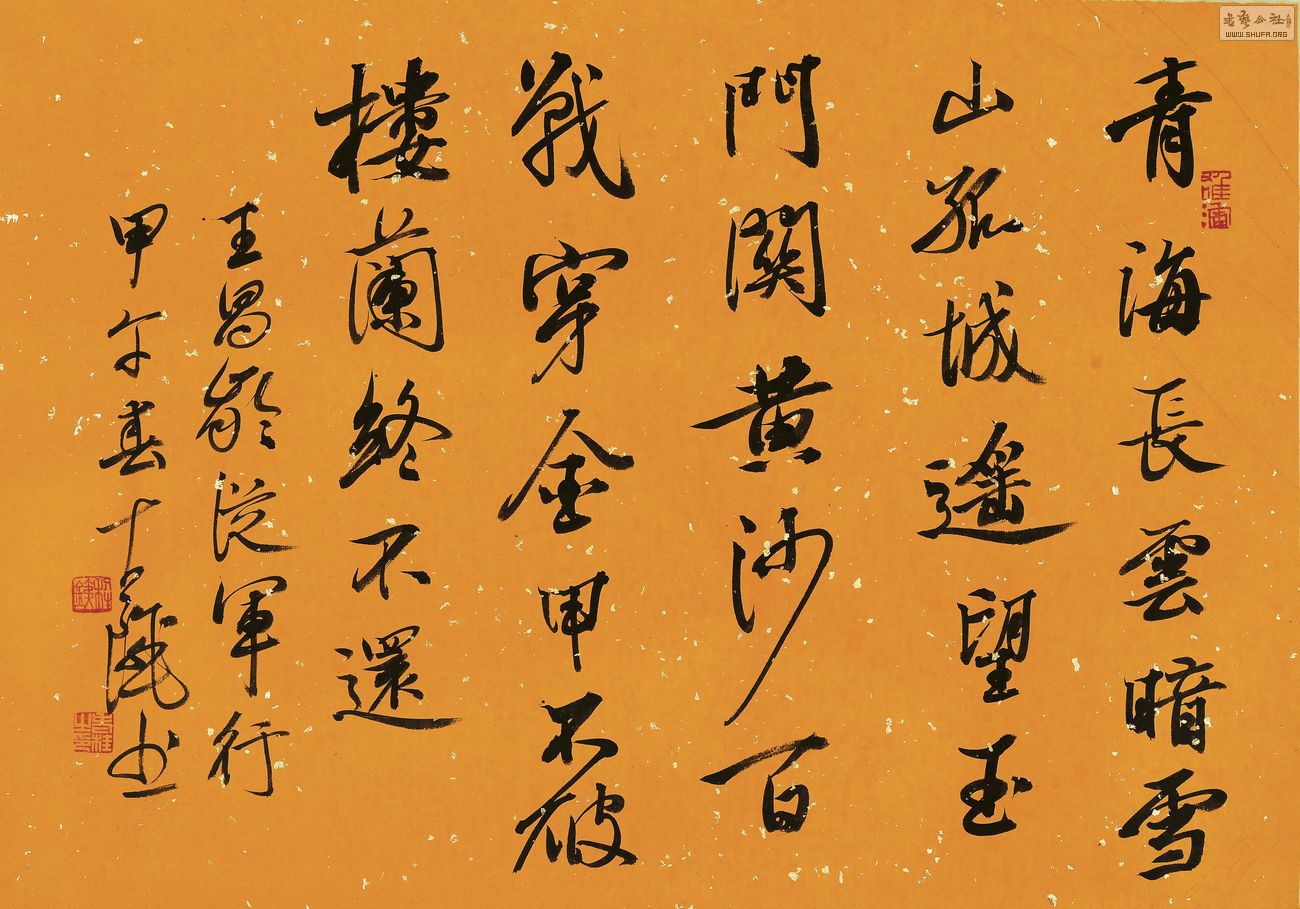 青海長雲暗雪
山孤城遥望玉
門関黄沙百
戰穿金甲不破
樓蘭終不還
王昌齡從軍行
甲午春十
书
WWW.SHUFA.ORG